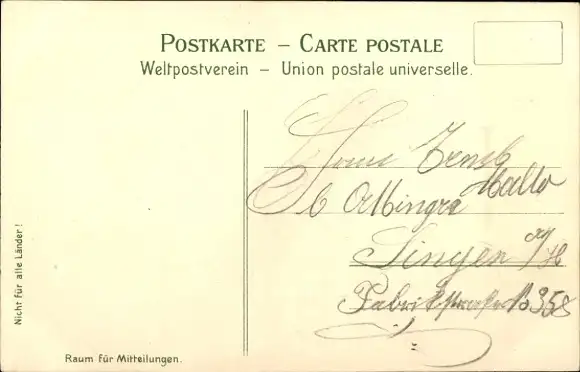 POSTKARTE – CARTE POSTALE
Weltpostverein – Union postale universelle.
Ernst
Singen a/H
Fabrikstrasse 358
Nicht für alle Länder!
Raum für Mitteilungen.